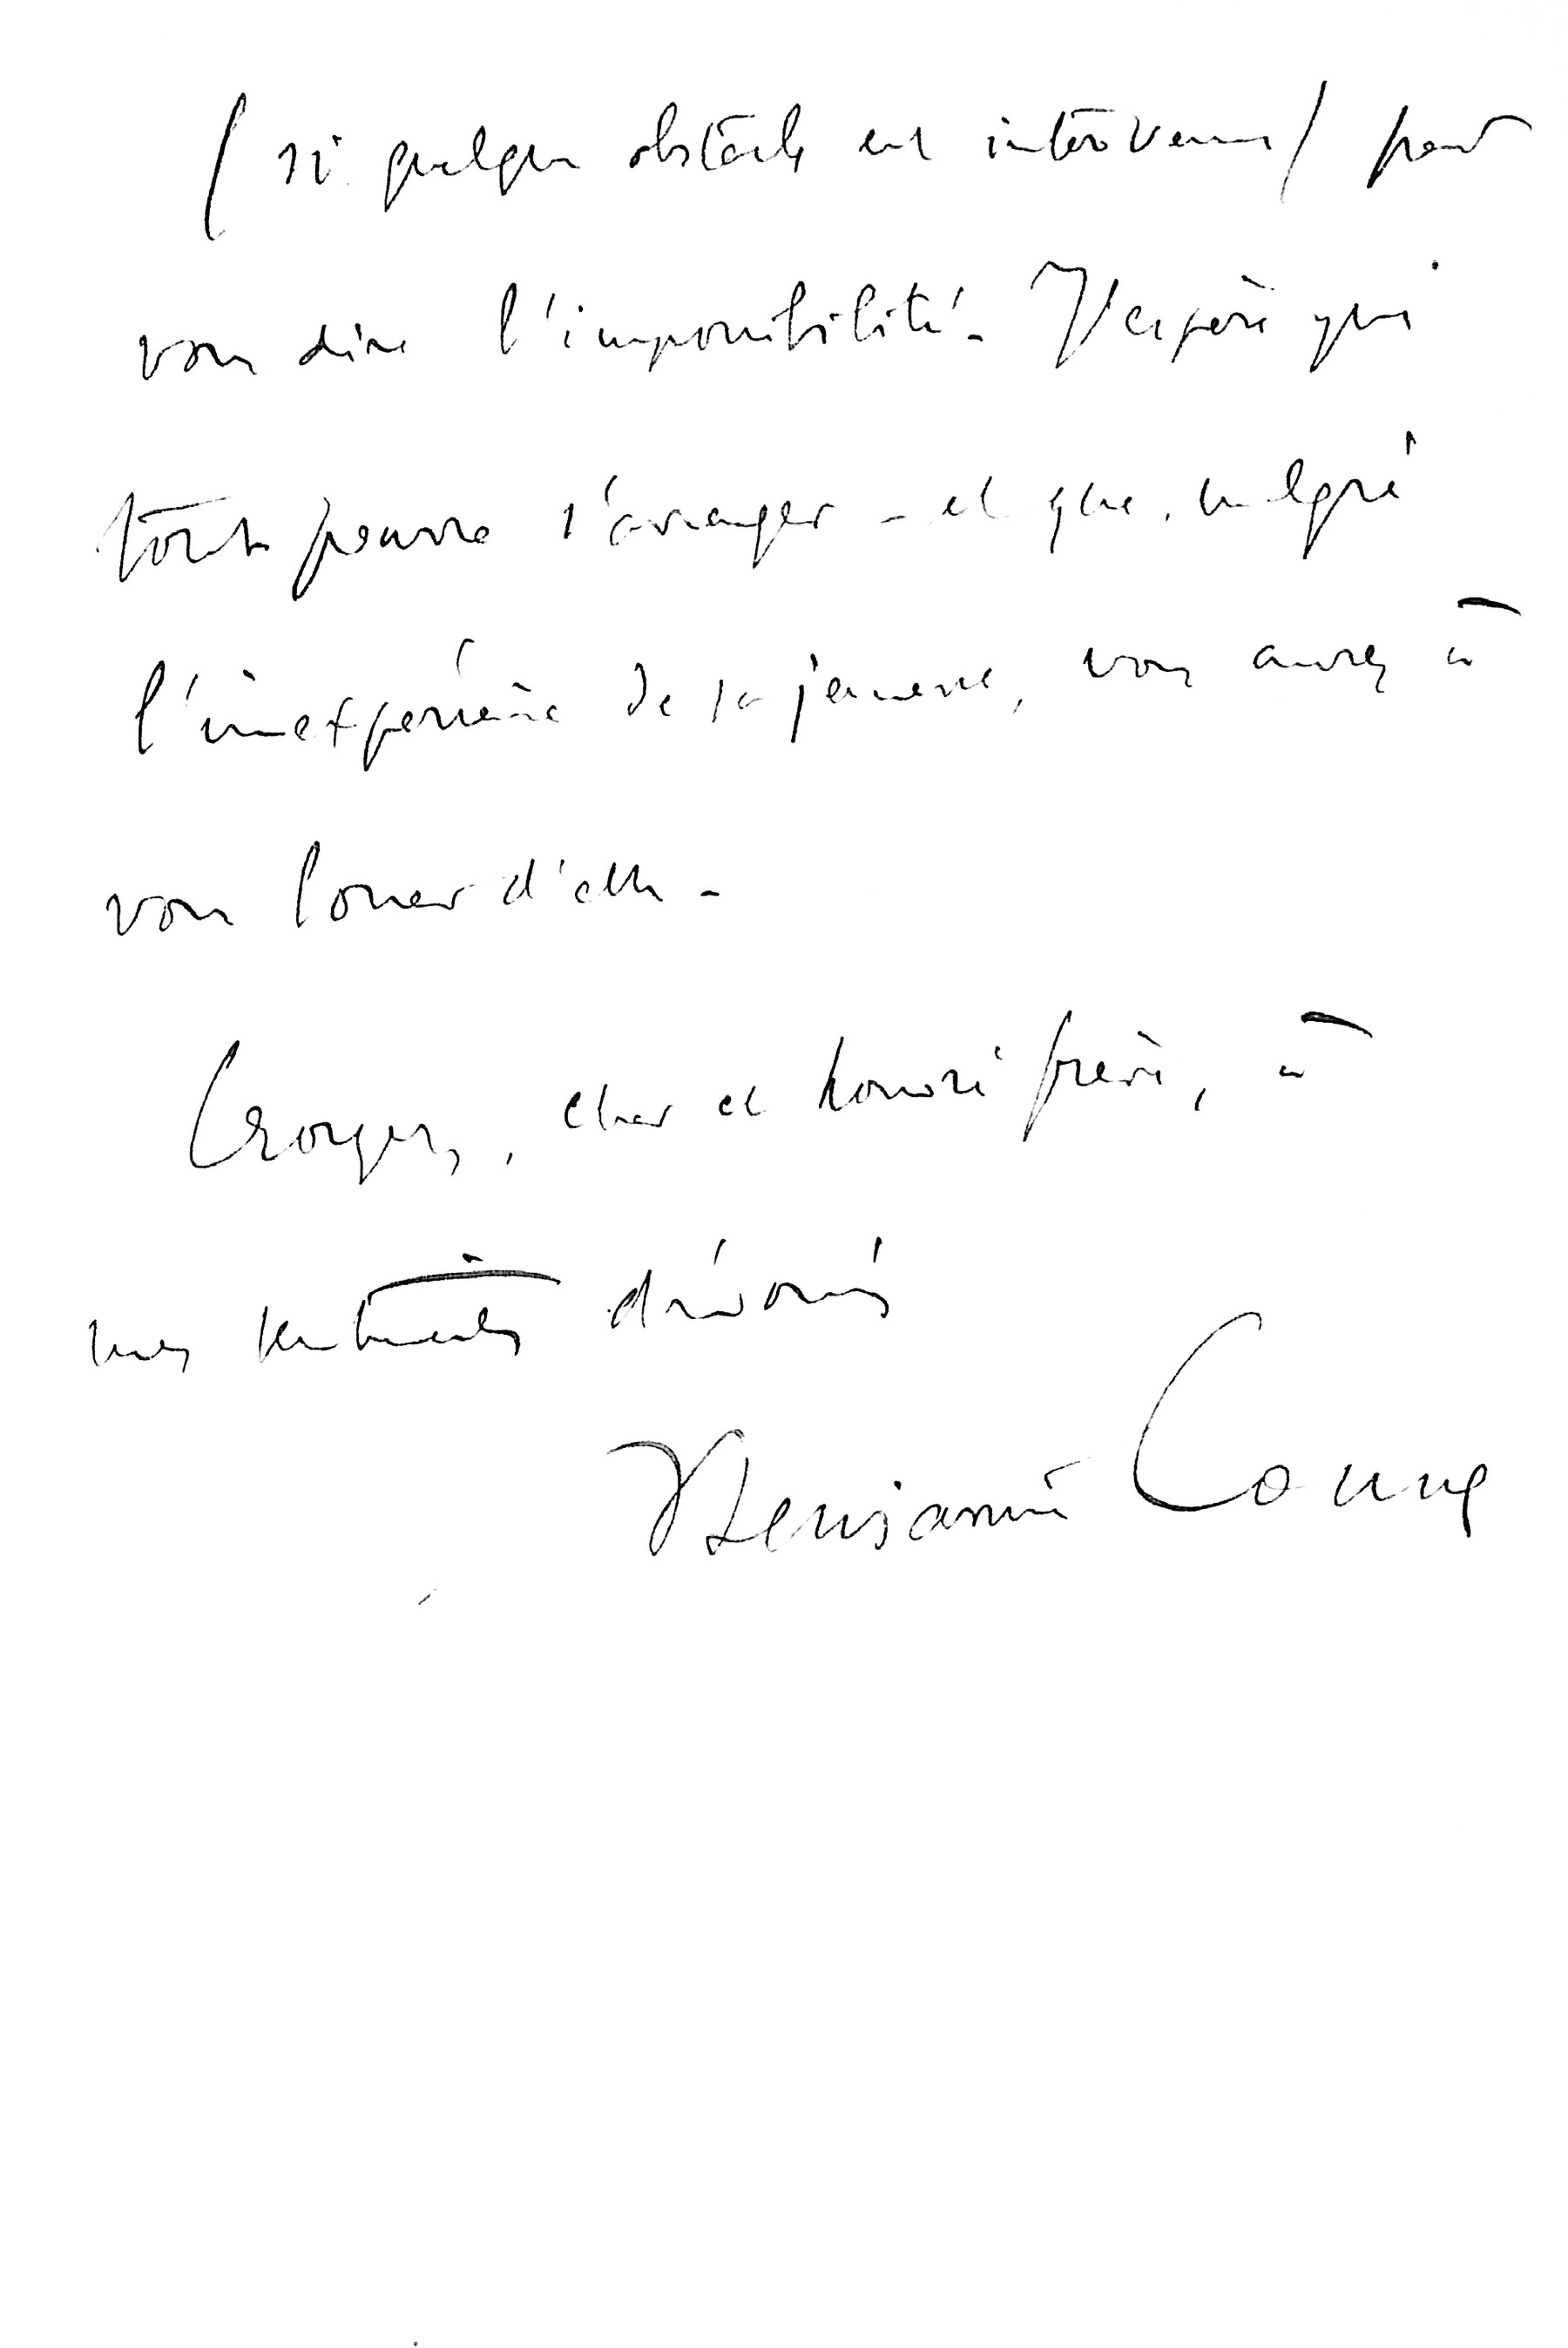 (si quelque obstacle est intervenu) pour
vous dire l'impossibilité. J'espère que
tout pourra s'arranger - et que, malgré
l'inexpérience de sa jeunesse, vous aurez à
vous louer d'elle -
Croyez, cher et honoré frère, à
mes sentiments dévoués
Benjamin